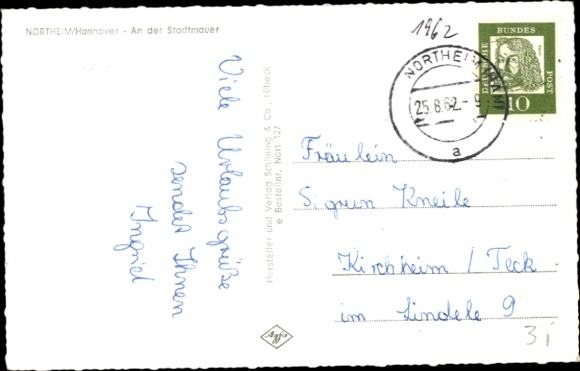 NORTHEIM/Hannover - An der Stadtmauer
1962
DEUTSCHE
BUNDES
POST
10
NORTHEIM (HAN)
25.8.62.-9
a
Viele Urlaubsgrüße
sendet Ihnen
Ingrid
Hersteller und Verlag Schöning & Co., Lübeck
e Bestellnr. Nort 127
Fräulein
Sigrun Kneile
Kirchheim / Teck
im Lindele 9
Agfa
3i